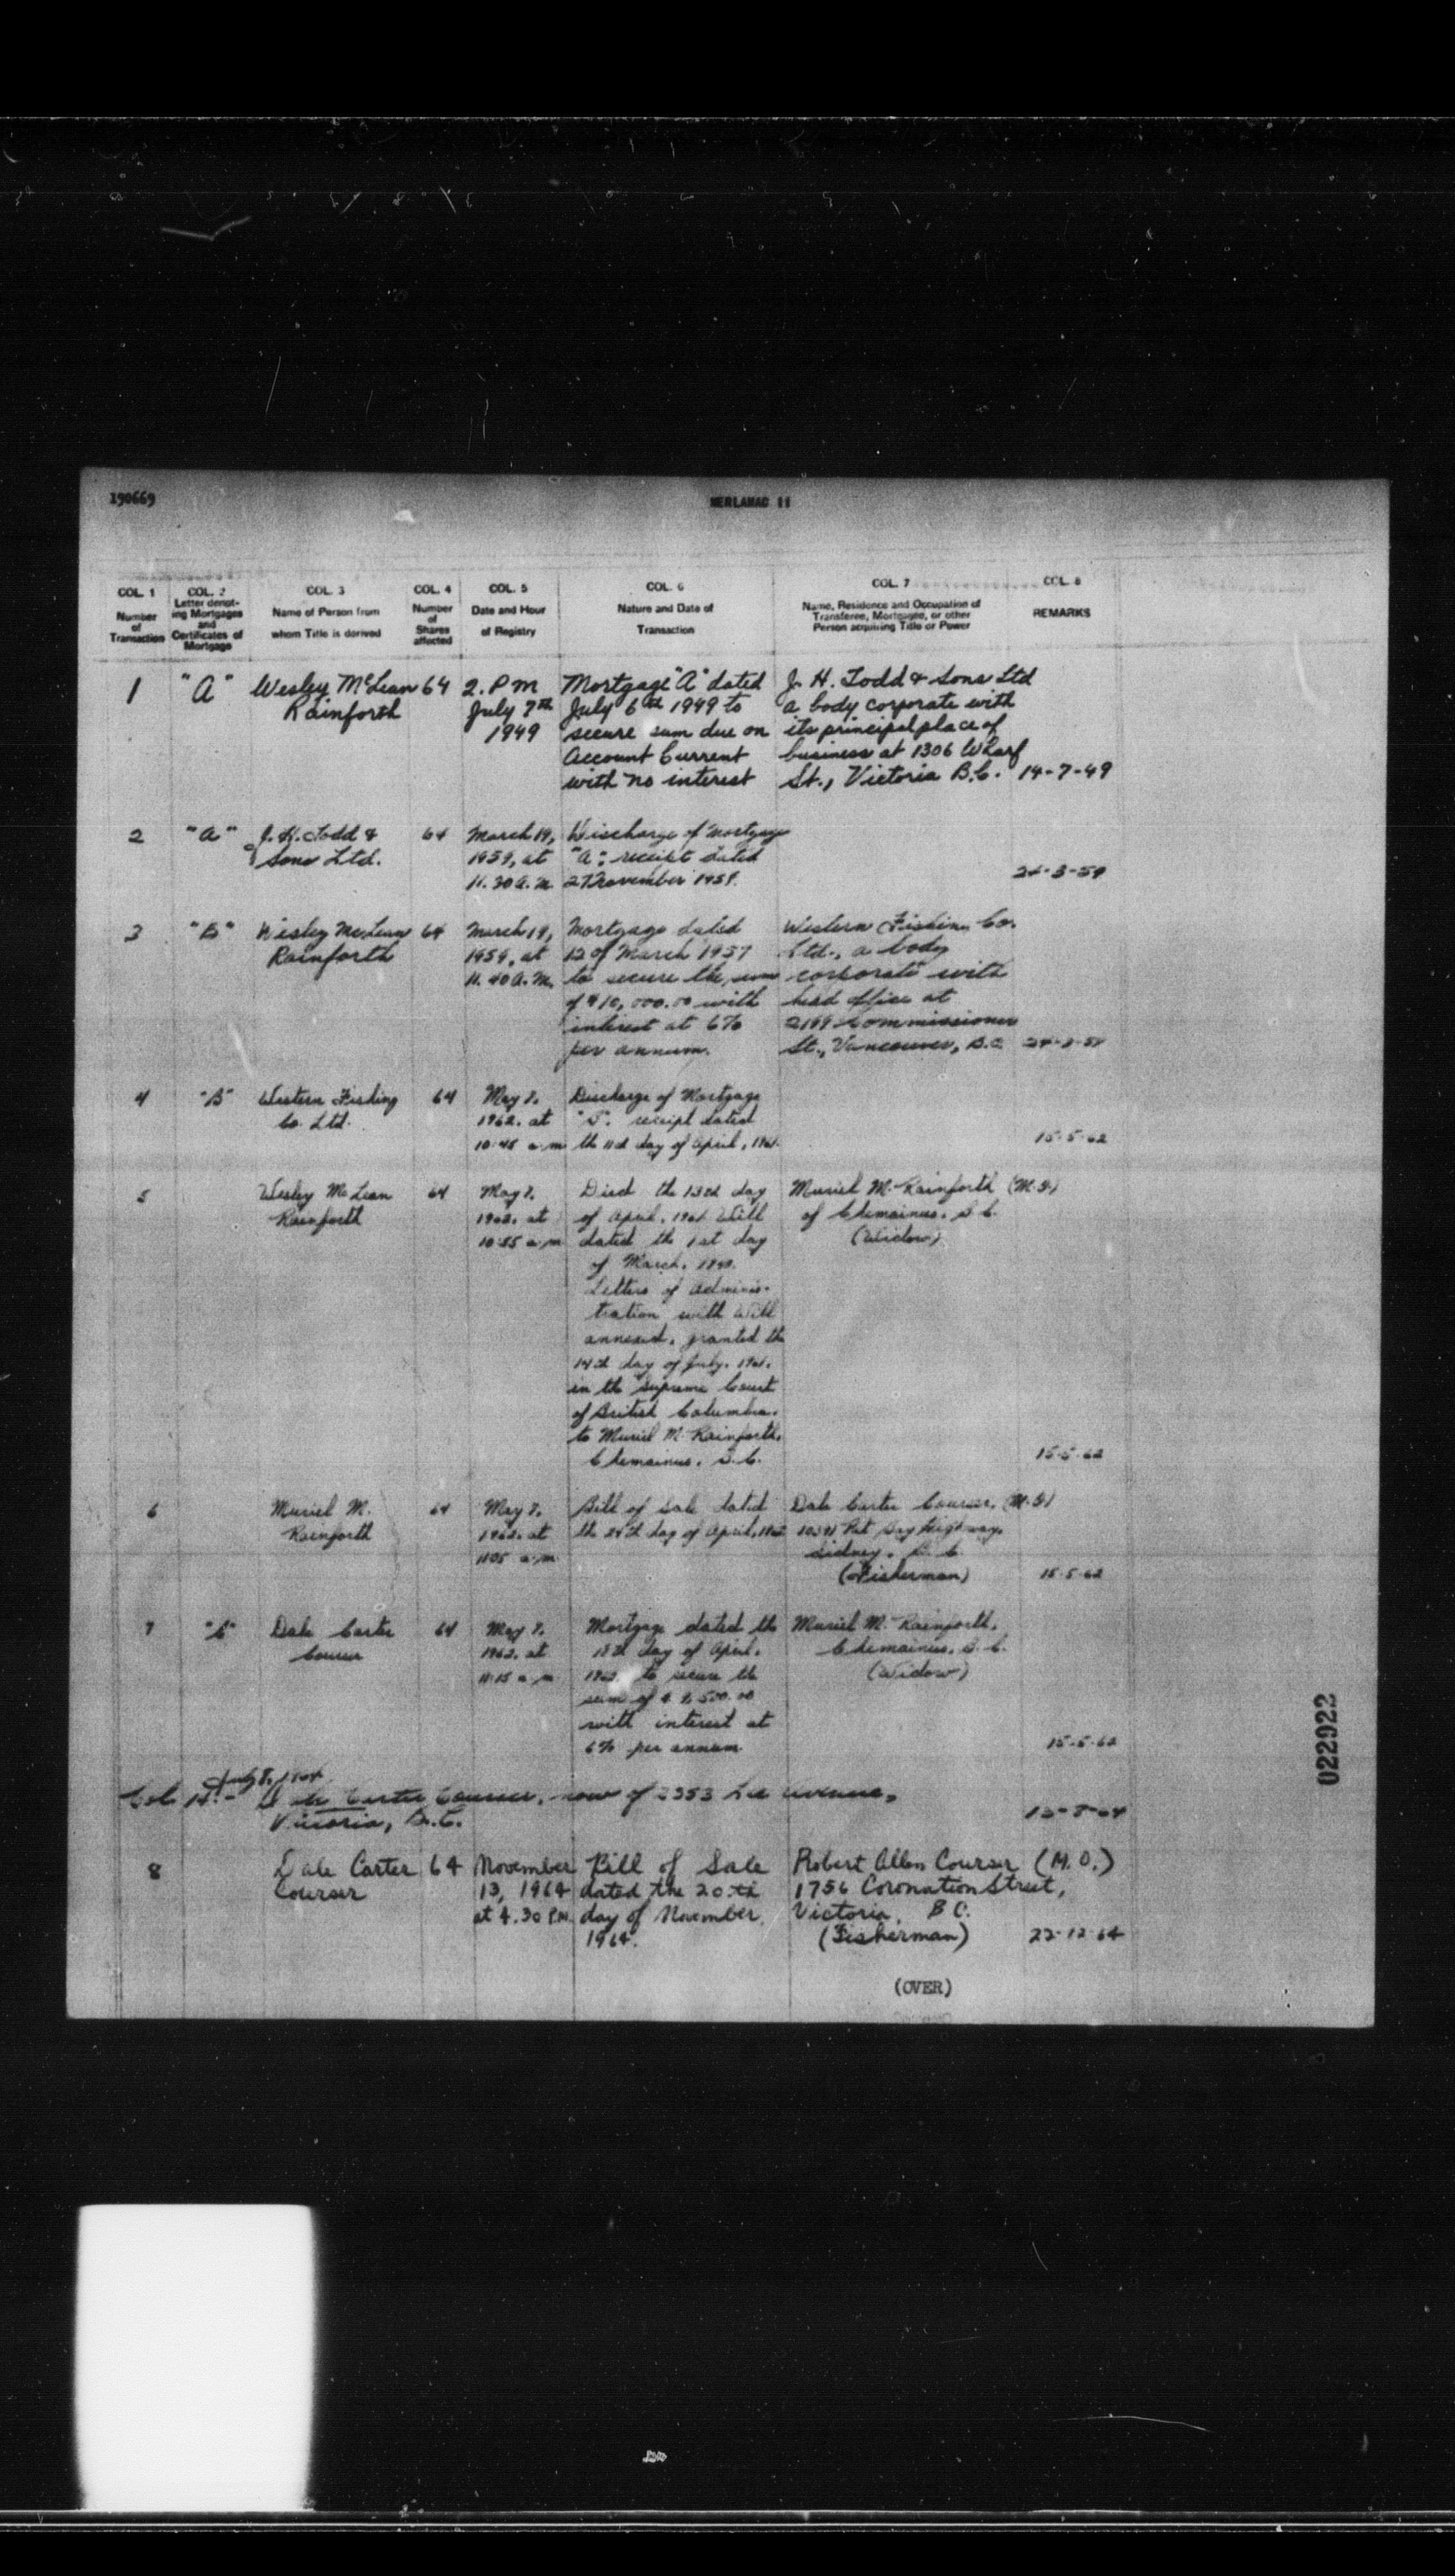 190669
MERLAMAC II
COL. 1 Number of Transaction
COL. 2 Letter denot-ing Mortgages and Certificates of Mortgage
COL. 3 Name of Person from whom Title is derived
COL. 4 Number of Shares affected
COL. 5 Date and Hour of Registry
COL. 6 Nature and Date of Transaction
COL. 7 Name, Residence and Occupation of Transferee, Mortgagee, or other Person acquiring Title or Power
COL. 8 REMARKS
1 "A" Wesley McLean 64 2. P m Mortgage "A" dated J. H. Todd & Sons Ltd
Rainforth July 7th July 6th 1949 to a body corporate with
1949 secure sum due on its principal place of
Account Current business at 1306 Wharf
with no interest St., Victoria B.C. 14-7-49
2 "A" J. H. Todd & 64 March 19, Discharge of Mortgage
Sons Ltd. 1959, at "A"; receipt dated
11.30 a.m. 27 November
3 "B" Wesley McLean 64 March 19, Mortgage dated Western Fishing Co.
Rainforth 1959, at 12 of March 1957 Ltd., a body
11.40 A.M. to secure the sum corporate with
of $10,000.00 with head office at
interest at 6% Commissioner
per annum. St., Vancouver, B.C.
4 "B" Western Fishing 64 May 7. Discharge of Mortgage
Co. Ltd. 1962. at "B". receipt dated
10:45 a.m. the 11th day of April, 1961. 15-5-62
5 Wesley McLean 64 May 7. Died the 13th day Muriel M. Rainforth (M.G.)
Rainforth 1962. at of April, 1961. Will of Chemainus. B.C.
10:55 a.m. dated the 1st day (Widow)
of March,
Letters of Adminis-
tration with Will
annexed, granted the
14th day of July. 1961.
in the Supreme Court
of British Columbia.
to Muriel M. Rainforth.
Chemainus. B.C. 15-5-62
6 Muriel M. 64 May 7. Bill of Sale dated Dale Carter Courser, (M.G.)
Rainforth 1962. at the 24th day of April, 1962 Pat Bay Highway.
11:05 a.m. Sidney. B.C.
(Fisherman) 15-5-62
7 "C" Dale Carter 64 May 7. Mortgage dated the Muriel M. Rainforth.
Courser 1962. at 18th day of April. Chemainus. B.C.
11:15 a.m. 1962. to secure the (Widow)
sum of $ 500.00
with interest at
6% per annum 15-5-62
July 8, 1964
Dale Carter Courser, now of 2353 Lee Avenue,
Victoria, B.C.
8 Dale Carter 64 November Bill of Sale Robert Allen Courser (M.O.)
Courser 13, 1964 dated the 20th 1756 Coronation Street,
at 4.30 P.M. day of November, Victoria, B C.
1964. (Fisherman) 22-12-64
(OVER)
022922